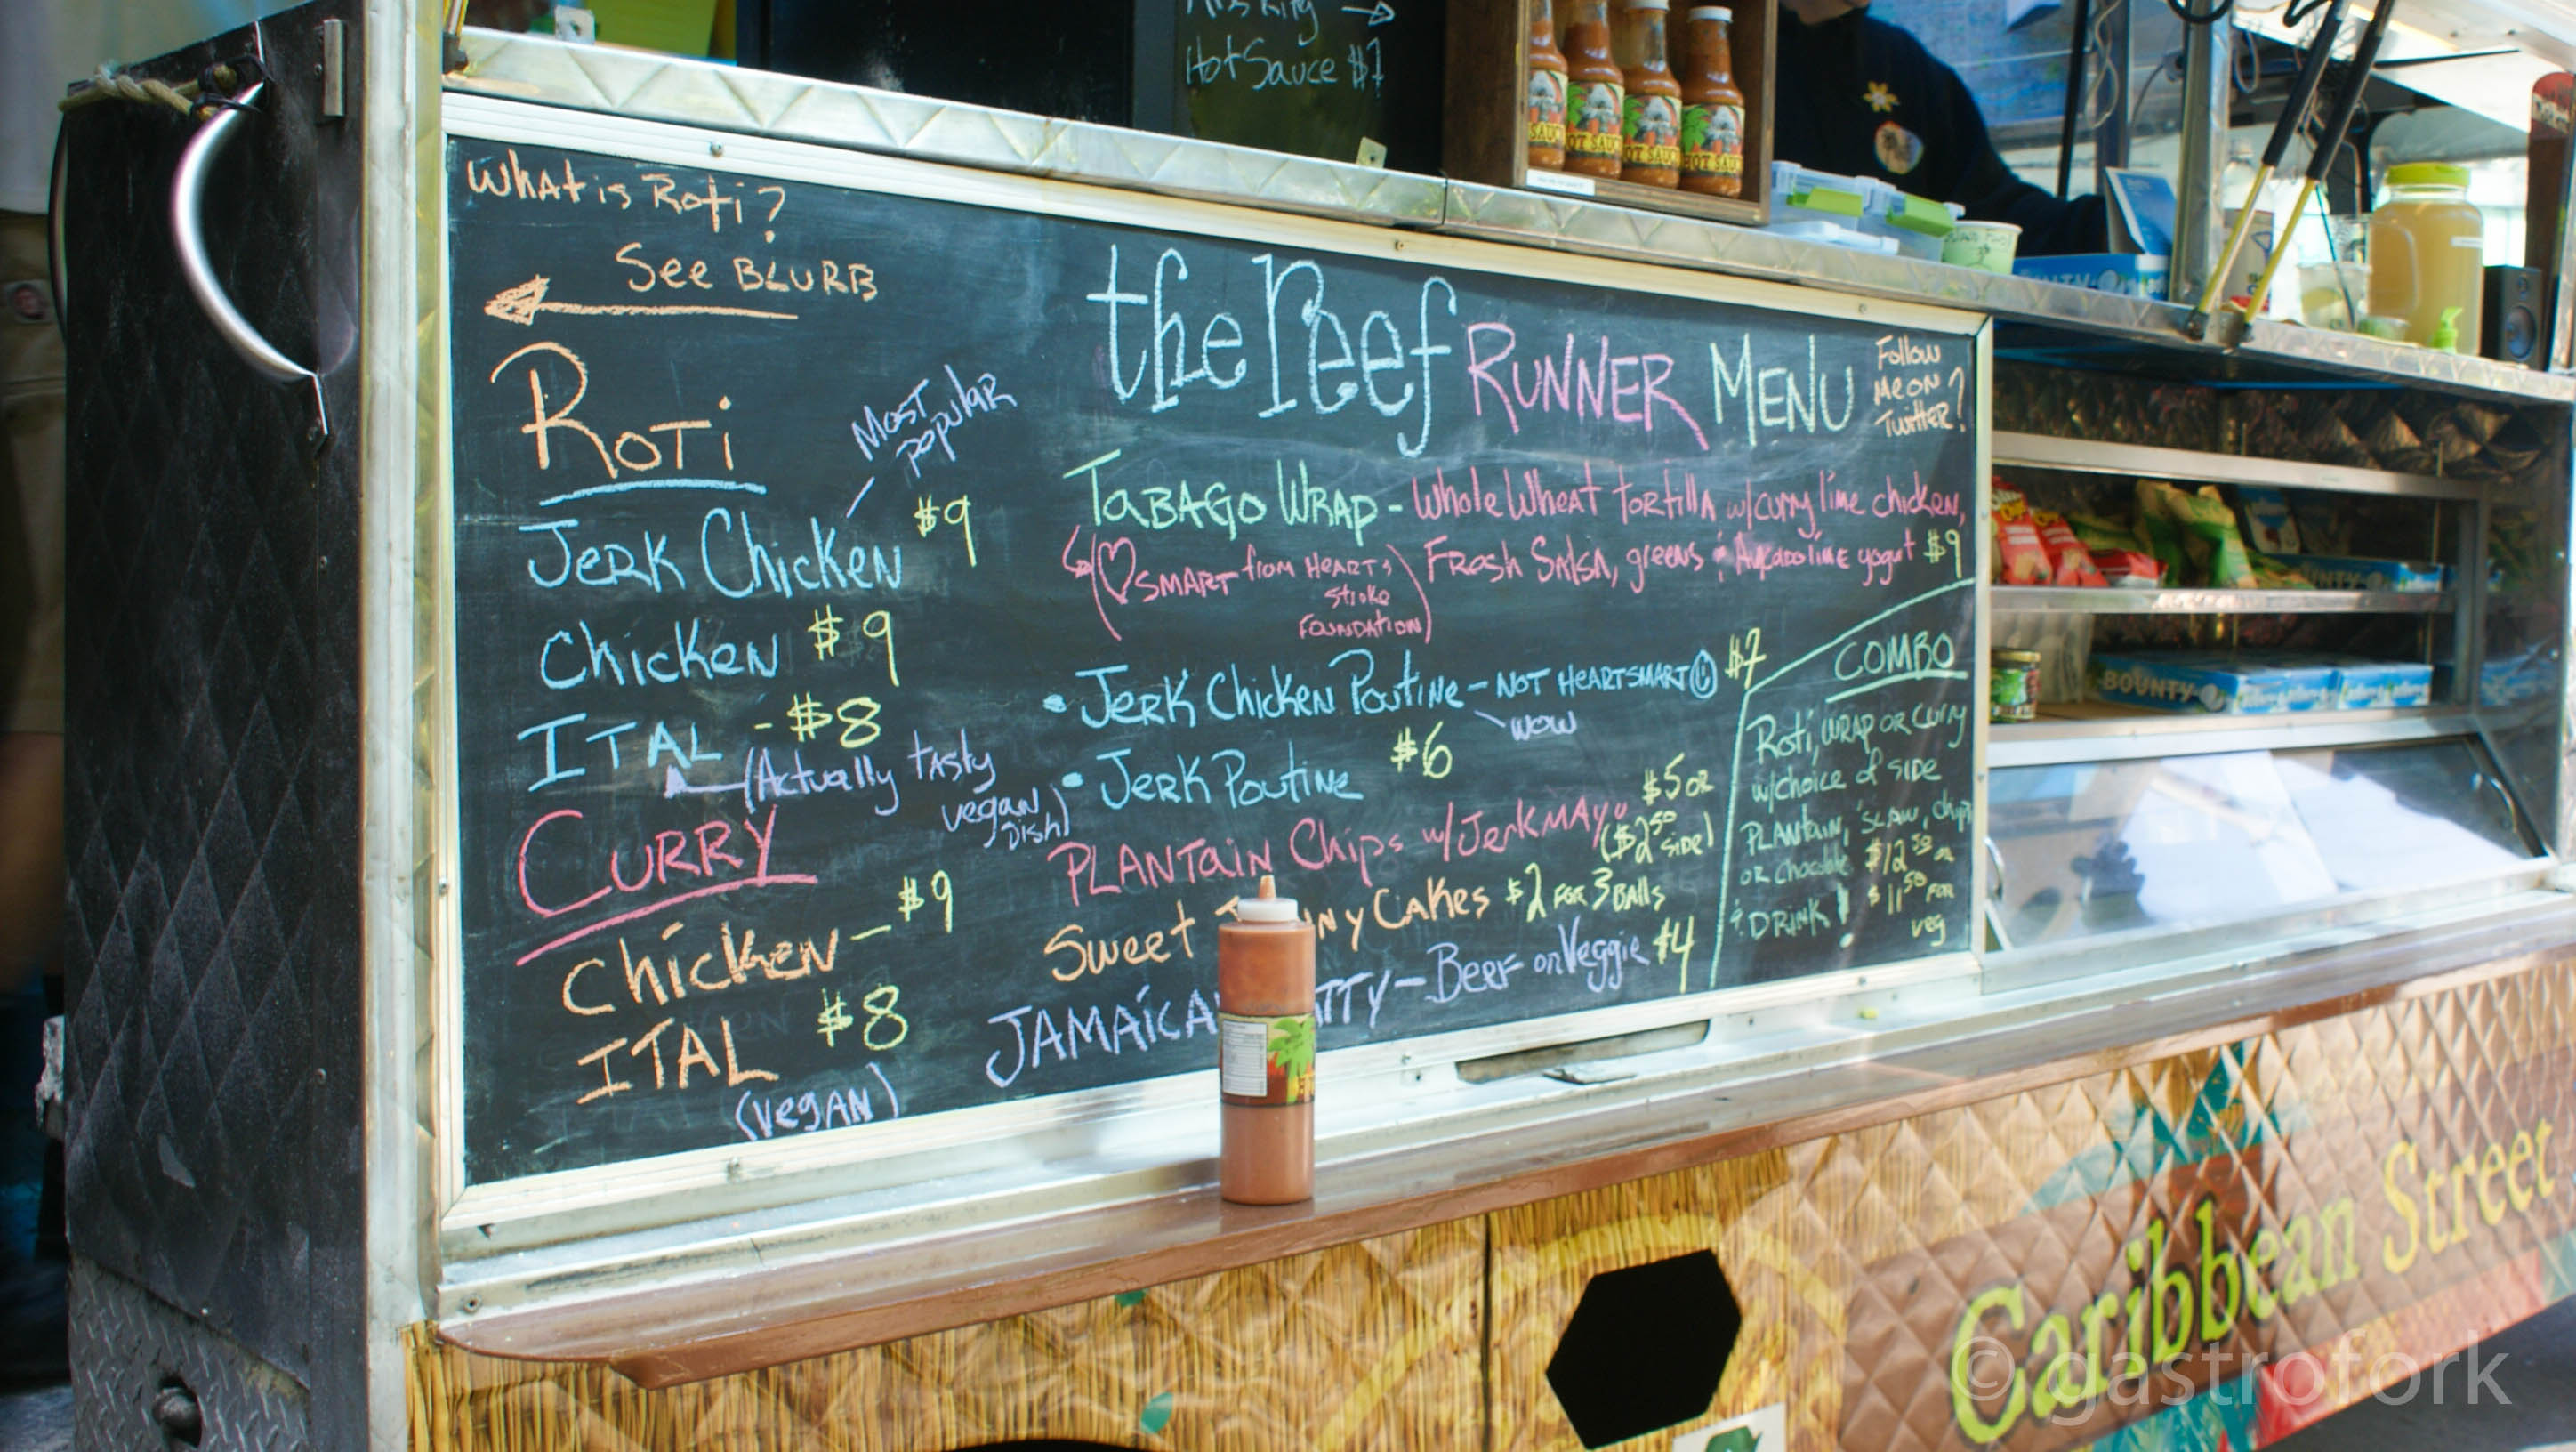 Hot Sauce $7
SAUCE
HOT SAUCE
HOT SAUCE
HOT SAUCE
What is Roti?
See BLURB
the reef RUNNER MENU
Follow
me on
Twitter?
ROTi
Most
popular
JERK Chicken $9
Chicken $9
ITAL - $8
(Actually tasty
vegan
Dish)
CURRY
Chicken - $9
ITAL $8
(vegan)
TABAGO WRAP - Whole Wheat tortilla w/curry lime chicken,
Fresh Salsa, greens & Avacado lime yogut $9
(♡ SMART from HEART &
Stroke
FOUNDATION)
• JERK Chicken Poutine - NOT HEARTSMART ☺ $7
WOW
• JERK Poutine $6
PLANTAIN Chips w/ Jerk MAYO $5 OR
($2.50 SiDE)
Sweet NNY CAKES $2 FOR 3 BALLS
JAMAICA ATTY - BEEF or Veggie $4
COMBO
Roti, WRAP OR Curry
w/choice of SIDE
PLANTAIN, 'SLAW, chips
OR Chocolate $12.50 OR
& DRINK! $11.50 FOR
veg
BOUNTY
BOUNTY
BOUNTY
Caribbean Street
© gastrofork